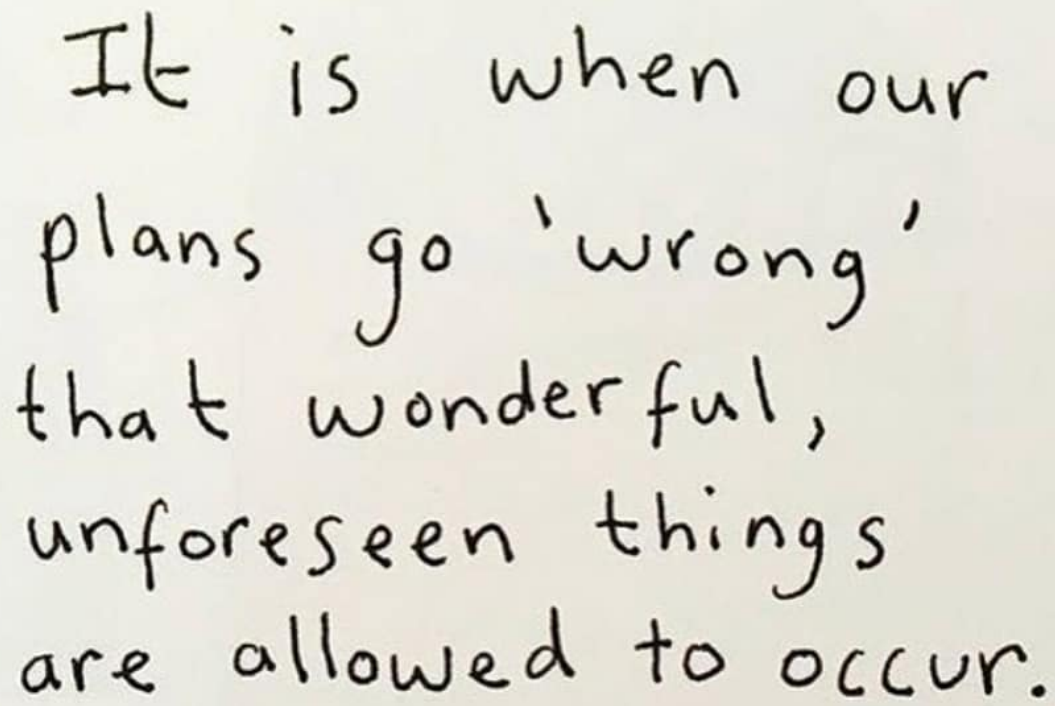 It is when our
plans go 'wrong'
that wonderful,
unforeseen things
are allowed to occur.